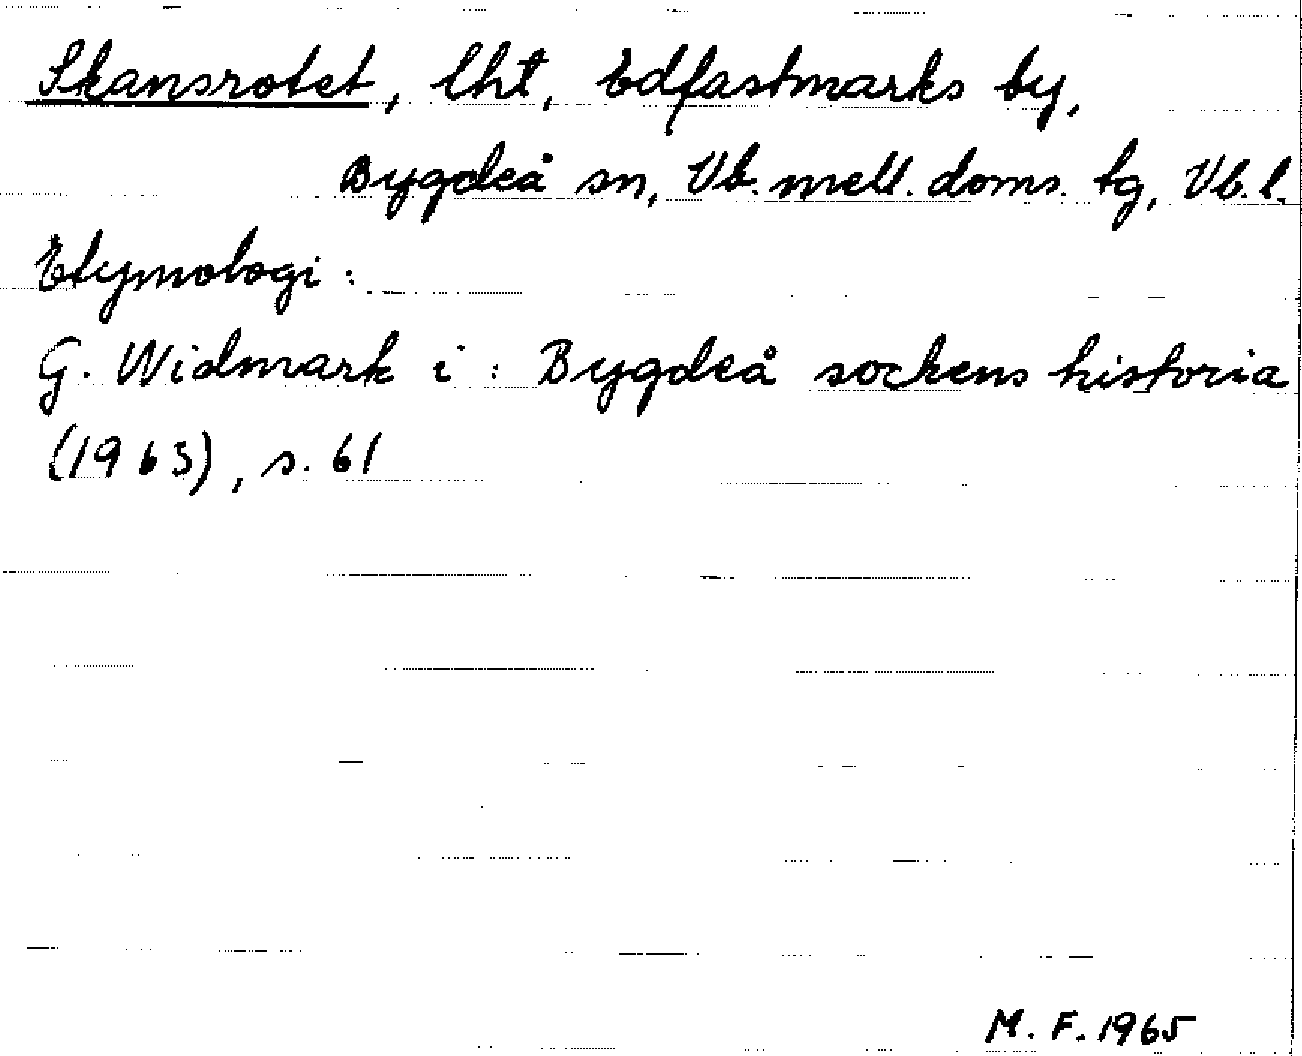 Skansrotet, lht, Edfastmarks by,
Bygdeå sn, Vb. mell. doms. tg, Vb. l.
Etymologi:
G. Widmark i: Bygdeå sockens historia
(1963), s. 61
M. F. 1965